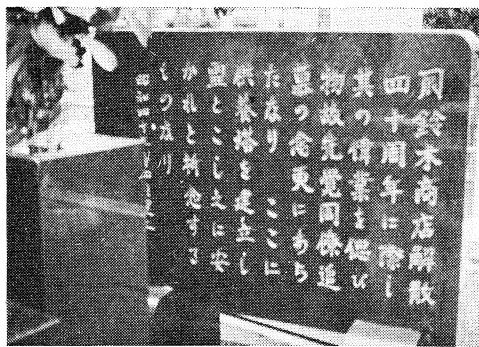 鈴木商店解散
四十周年に際し
其の偉業を偲び
物故先覺同僚追
慕の念更にあら
たなり ここに
供養塔を建立し
霊とこしえに安
かれと祈念する
もの
昭和四十